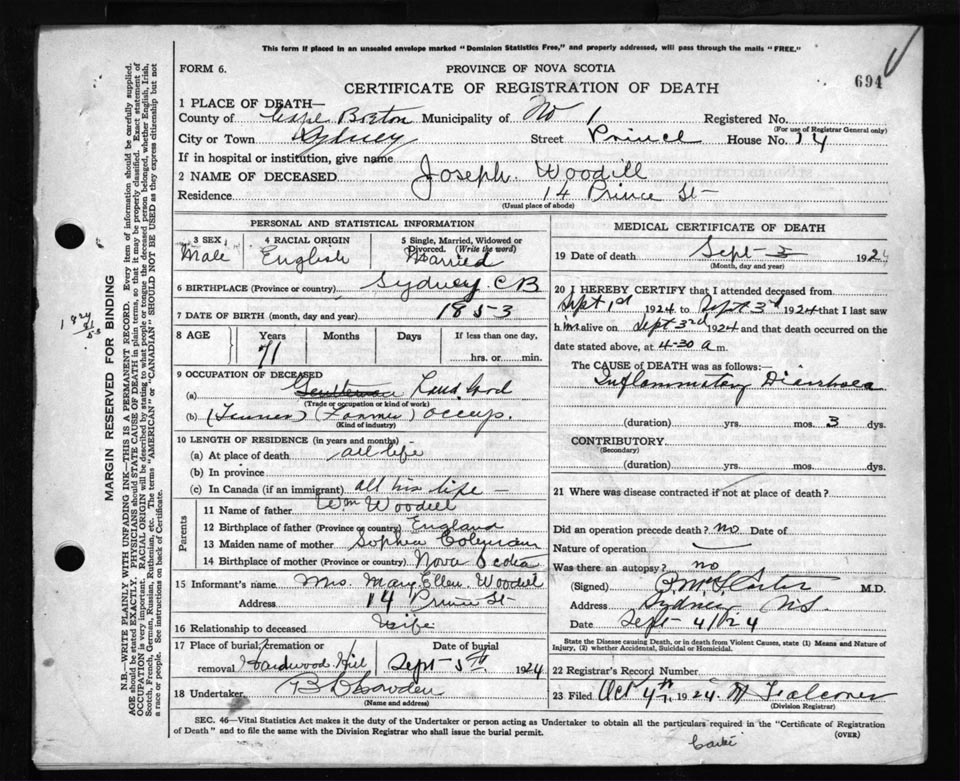 This form if placed in an unsealed envelope marked "Dominion Statistics Free," and properly addressed, will pass through the mails "FREE."
FORM 6.
PROVINCE OF NOVA SCOTIA
694
CERTIFICATE OF REGISTRATION OF DEATH
1 PLACE OF DEATH—
County of Cape Breton Municipality of No 1 Registered No.
(For use of Registrar General only)
City or Town Sydney Street Prince House No. 14
If in hospital or institution, give name
2 NAME OF DECEASED Joseph Woodill
Residence 14 Prince St
(Usual place of abode)
PERSONAL AND STATISTICAL INFORMATION
3 SEX 4 RACIAL ORIGIN 5 Single, Married, Widowed or Divorced. (Write the word)
Male English Married
6 BIRTHPLACE (Province or country) Sydney CB
7 DATE OF BIRTH (month, day and year) 1853
8 AGE Years Months Days If less than one day,
71 hrs. or min.
9 OCCUPATION OF DECEASED
(a) Gentleman
(Trade or occupation or kind of work)
(b) (Farmer) occup.
(Kind of industry)
10 LENGTH OF RESIDENCE (in years and months)
(a) At place of death all life
(b) In province
(c) In Canada (if an immigrant) all his life —
Parents
11 Name of father Wm Woodill
12 Birthplace of father (Province or country) England
13 Maiden name of mother Sophia
14 Birthplace of mother (Province or country) Nova Scotia
15 Informant's name Mrs. Mary Ellen Woodill
Address 14 Prince St
16 Relationship to deceased Wife
17 Place of burial, cremation or removal Hardwood Hill
Date of burial Sept 5th 1924
18 Undertaker
(Name and address)
MEDICAL CERTIFICATE OF DEATH
19 Date of death Sept 3 1924
(Month, day and year)
20 I HEREBY CERTIFY that I attended deceased from
Sept 1st 1924 to Sept 3rd 1924 that I last saw
him alive on Sept 3rd 1924 and that death occurred on
date stated above, at 4-30 a m.
The CAUSE of DEATH was as follows:
Inflammatory Diarrhoea
(duration) yrs. mos. 3 dys.
CONTRIBUTORY
(Secondary)
(duration) yrs. mos. dys.
21 Where was disease contracted if not at place of death?
Did an operation precede death? no Date of
Nature of operation
Was there an autopsy? no
(Signed) M.D.
Address Sydney NS
Date Sept 4/1924
State the Disease causing Death, or in death from Violent Causes, state (1) Means and Nature of Injury, (2) whether Accidental, Suicidal or Homicidal.
22 Registrar's Record Number
23 Filed Oct 4th 1924 Falconer
(Division Registrar)
SEC. 46—Vital Statistics Act makes it the duty of the Undertaker or person acting as Undertaker to obtain all the particulars required in the "Certificate of Registration
of Death" and to file the same with the Division Registrar who shall issue the burial permit.
(OVER)
MARGIN RESERVED FOR BINDING
N.B.—WRITE PLAINLY WITH UNFADING INK—THIS IS A PERMANENT RECORD. Every item of information should be carefully supplied.
AGE should be stated EXACTLY. PHYSICIANS should STATE CAUSE OF DEATH in plain terms, so that it may be properly classified. Exact statement of
OCCUPATION is very important. RACIAL ORIGIN will be described by stating to what people or tongue the deceased person belonged, whether English, Irish,
Scotch, French, German, Russian, Ruthenian, etc. The terms "AMERICAN" or "CANADIAN" SHOULD NOT BE USED as they express citizenship but not
a race or people. See instructions on back of Certificate.